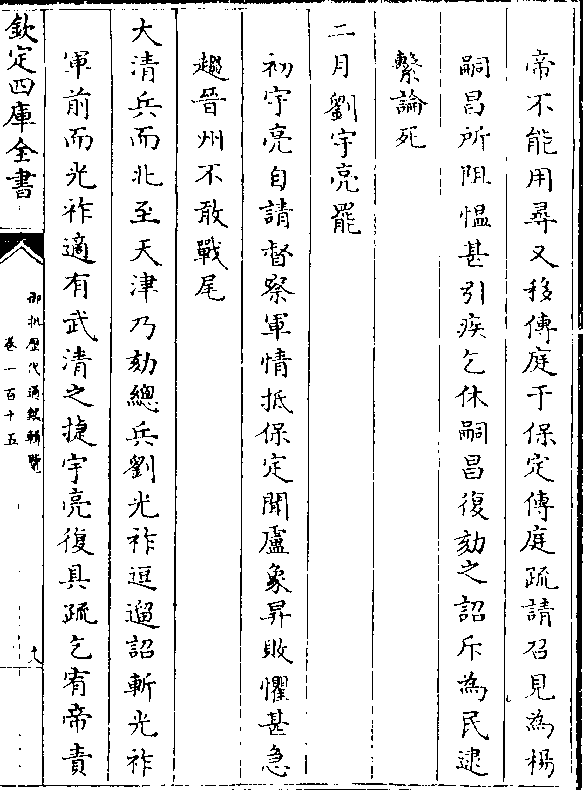 帝不能用尋又移傳庭于保定傳庭疏請召見為楊
嗣昌所阻愠甚引疾乞休嗣昌復劾之詔斥為民逮
繫論死
二月劉宇亮罷
初宇亮自請督察軍情抵保定聞盧象昇敗懼甚急
趨晉州不敢戰尾
大清兵而北至天津乃劾總兵劉光祚逗遛詔斬光祚
軍前而光祚適有武清之捷宇亮復具疏乞宥帝責
欽定四庫全書
御批歷代通鑑輯覽
卷一百十五
九